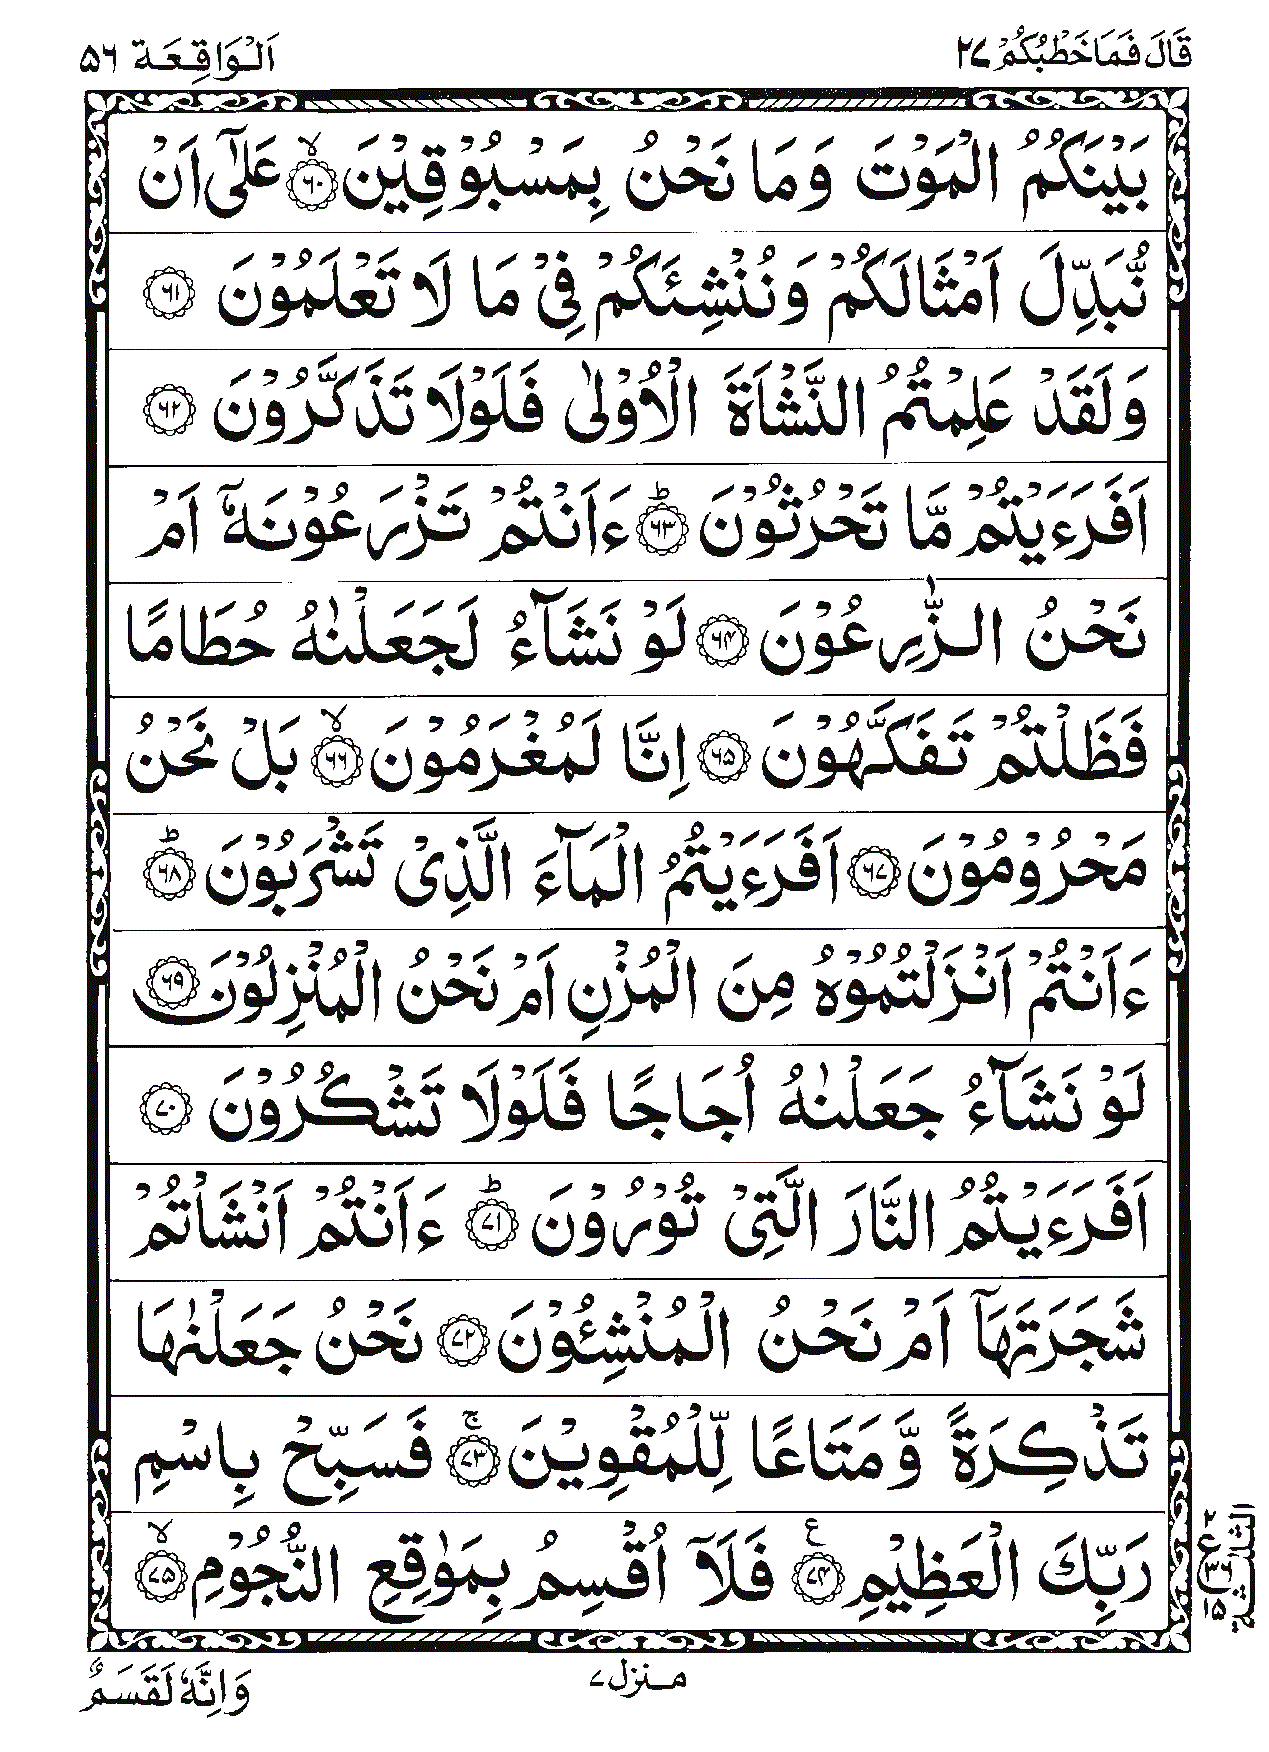 قَالَ فَمَا خَطْبُكُمْ ٢٧
اَلْوَاقِعَة ٥٦
بَيْنَكُمُ الْمَوْتَ وَمَا نَحْنُ بِمَسْبُوْقِيْنَ ۙ﴿٦٠﴾ عَلٰٓى اَنْ
نُّبَدِّلَ اَمْثَالَكُمْ وَنُنْشِئَكُمْ فِيْ مَا لَا تَعْلَمُوْنَ ﴿٦١﴾
وَلَقَدْ عَلِمْتُمُ النَّشْاَةَ الْاُوْلٰى فَلَوْلَا تَذَكَّرُوْنَ ﴿٦٢﴾
اَفَرَءَيْتُمْ مَّا تَحْرُثُوْنَ ؕ﴿٦٣﴾ ءَاَنْتُمْ تَزْرَعُوْنَهٗۤ اَمْ
نَحْنُ الزّٰرِعُوْنَ ﴿٦٤﴾ لَوْ نَشَآءُ لَجَعَلْنٰهُ حُطَامًا
فَظَلْتُمْ تَفَكَّهُوْنَ ﴿٦٥﴾ اِنَّا لَمُغْرَمُوْنَ ۙ﴿٦٦﴾ بَلْ نَحْنُ
مَحْرُوْمُوْنَ ﴿٦٧﴾ اَفَرَءَيْتُمُ الْمَآءَ الَّذِيْ تَشْرَبُوْنَ ؕ﴿٦٨﴾
ءَاَنْتُمْ اَنْزَلْتُمُوْهُ مِنَ الْمُزْنِ اَمْ نَحْنُ الْمُنْزِلُوْنَ ﴿٦٩﴾
لَوْ نَشَآءُ جَعَلْنٰهُ اُجَاجًا فَلَوْلَا تَشْكُرُوْنَ ﴿٧٠﴾
اَفَرَءَيْتُمُ النَّارَ الَّتِيْ تُوْرُوْنَ ؕ﴿٧١﴾ ءَاَنْتُمْ اَنْشَاْتُمْ
شَجَرَتَهَآ اَمْ نَحْنُ الْمُنْشِـُٔوْنَ ﴿٧٢﴾ نَحْنُ جَعَلْنٰهَا
تَذْكِرَةً وَّمَتَاعًا لِّلْمُقْوِيْنَ ۚ﴿٧٣﴾ فَسَبِّحْ بِاسْمِ
رَبِّكَ الْعَظِيْمِ ؑ﴿٧٤﴾ فَلَآ اُقْسِمُ بِمَوٰقِعِ النُّجُوْمِ ۙ﴿٧٥﴾
الثلٰثة
ع
٢
٣٦
١٥
مـنزل ٧
وَاِنَّهٗ لَقَسَمٌ